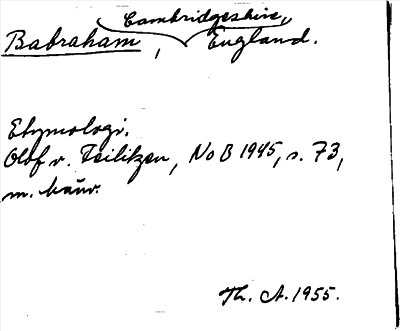 Cambridgeshire,
Babraham, England.
Etymologi.
Olof v. Feilitzen, NoB 1945, s. 73,
m. hänv.
Th. A. 1955.